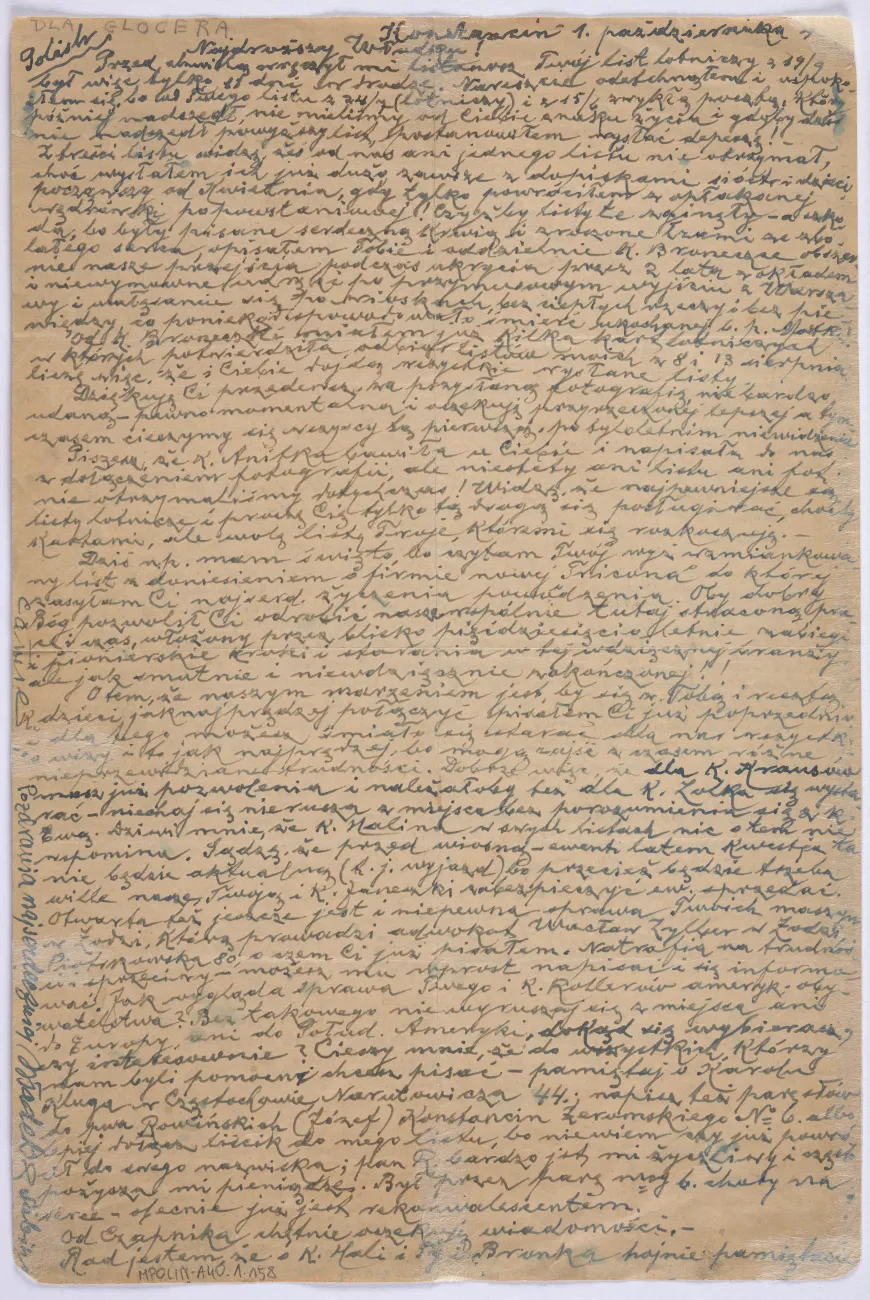 DLA GLOCERA
Konstancin 1. października
Najdroższy Władziu!
Przed chwilą wręczył mi listonosz Twój list lotniczy z 19/9
był więc tylko 11 dni w drodze. Nareszcie odetchnąłem i uspoko-
iłem się, bo od Twego listu z 24/7 (lotniczy) i z 15/6 zwykłą pocztą, który
później nadszedł, nie mieliśmy od Ciebie znaku życia i gdyby dziś
nie nadszedł powyższy list, postanowiłem wysłać depeszę!
Z treści listu widzę, żeś od nas ani jednego listu nie otrzymał,
choć wysłałem ich już dużo, zawsze z dopiskami sióstr i dzieci
począwszy od kwietnia, gdy tylko powróciłem z opłakanej
wędrówki popowstaniowej! Czyżby listy te zginęły – a szko-
da, bo były pisane serdeczną krwią i zroszone łzami ze zbo-
lałego serca, opisałem Tobie i oddzielnie K. Broneczce obszer-
nie nasze przejścia podczas ukrycia przez 2 lata z okładem
i niewymowne udręki po przymusowym wyjściu z Warsza-
wy i wałęsanie się po wioskach, bez ciepłych rzeczy i bez pie-
niędzy co poniekąd spowodowało śmierć ukochanej b. p. Matki.
Od K. Broneczki miałem już kilka kart lotniczych
w których potwierdziła odbiór listów moich z 8 i 13 sierpnia
liczę więc, że i Ciebie dojdą wszystkie wysłane listy.
Dziękuję Ci przedewsz. za przysłaną fotografię, nie bardzo
udaną – pewno momentalną i oczekuję przyrzeczonej lepszej a tym
czasem cieszymy się wszyscy tą pierwszą po tyloletnim niewidzeniu
Piszesz, że K. Anitka bawiła u Ciebie i napisała do nas
z dołączeniem fotografii, ale niestety ani listu ani fot.
nie otrzymaliśmy dotychczas! Widzę, że najpewniejsze są
listy lotnicze i proszę Cię tylko tą drogą się posługiwać, choćby
kartami, ale wolę listy Twoje, któremi się rozkoszuję. –
Dziś n.p. mam święto, bo czytam Twój wyż wzmiankowa-
ny list z doniesieniem o firmie nowej "Tricona" do której
zasyłam Ci najserd. życzenia powodzenia. Oby dobry
Bóg pozwolił Ci odrobić nasze wspólnie tutaj straconą pra-
cę i czas, włożony przez blisko pięćdziesięcioletnie zabiegi
i pionierskie kroki i starania w tej wdzięcznej branży
ale jak smutnie i niewdzięcznie zakończonej!
O tem, że naszym marzeniem jest, by się z Tobą i resztą
dzieci jaknajprędzej połączyć pisałem Ci już poprzednio
i dla tego możesz śmiało się starać dla nas wszystk.
o wizy i to jak najprędzej, bo mogą zajść z czasem różne
nieprzewidziane trudności. Dobrze więc, że dla K. Krausów
masz już pozwolenia i należałoby też dla K. Lolka się wysta-
rać – niechaj się nie rusza z miejsca bez porozumienia się z K.
Ewą. Dziwi mnie, że K. Halina w swych listach nic o tem nie
wspomina. Sądzę, że przed wiosną – ewent. latem kwestja ta
nie będzie aktualną (t.j. wyjazd) bo przecież będzie trzeba
wille naszą, Twoją i K. Janeczki zabezpieczyć ew. sprzedać.
Otwarta też jeszcze jest i niepewna sprawa Twoich maszyn
w Łodzi, którą prowadzi adwokat Wacław Zylber w Łodzi
Piotrkowska 80, o czem Ci już pisałem. Natrafia na trudnoś-
ci i sprzeciwy – możesz mu wprost napisać i się informo-
wać. Jak wygląda sprawa Twego i K. Rollerów ameryk. oby-
watelstwa? Bez takowego nie wyruszaj się z miejsca ani
do Europy, ani do Połud. Ameryki, dokąd się wybierasz,
czy interesownie? Cieszy mnie, że do wszystkich, którzy
nam byli pomocni chcesz pisać – pamiętaj o Karolu
Kluga w Częstochowie Narutowicza 44.; napisz też parę słów
do pwa Rowińskich (Józef) Konstancin Żeromskiego No 6. albo
lepiej dołącz liścik do mego listu, bo niewiem czy już powró-
cił do swego nazwiska; pan R. bardzo jest mi życzliwy i częst.
pożycza mi pieniądze. Był przez parę msy b. chory na
serce – obecnie już jest rekonwalescentem.
Od Czapnika chętnie oczekuję wiadomości. –
Rad jestem, że o K. Hali i Bronka hojnie pamiętacie
Pozdrawia najserdeczniej Władek
MPOLIN-A40.1.158